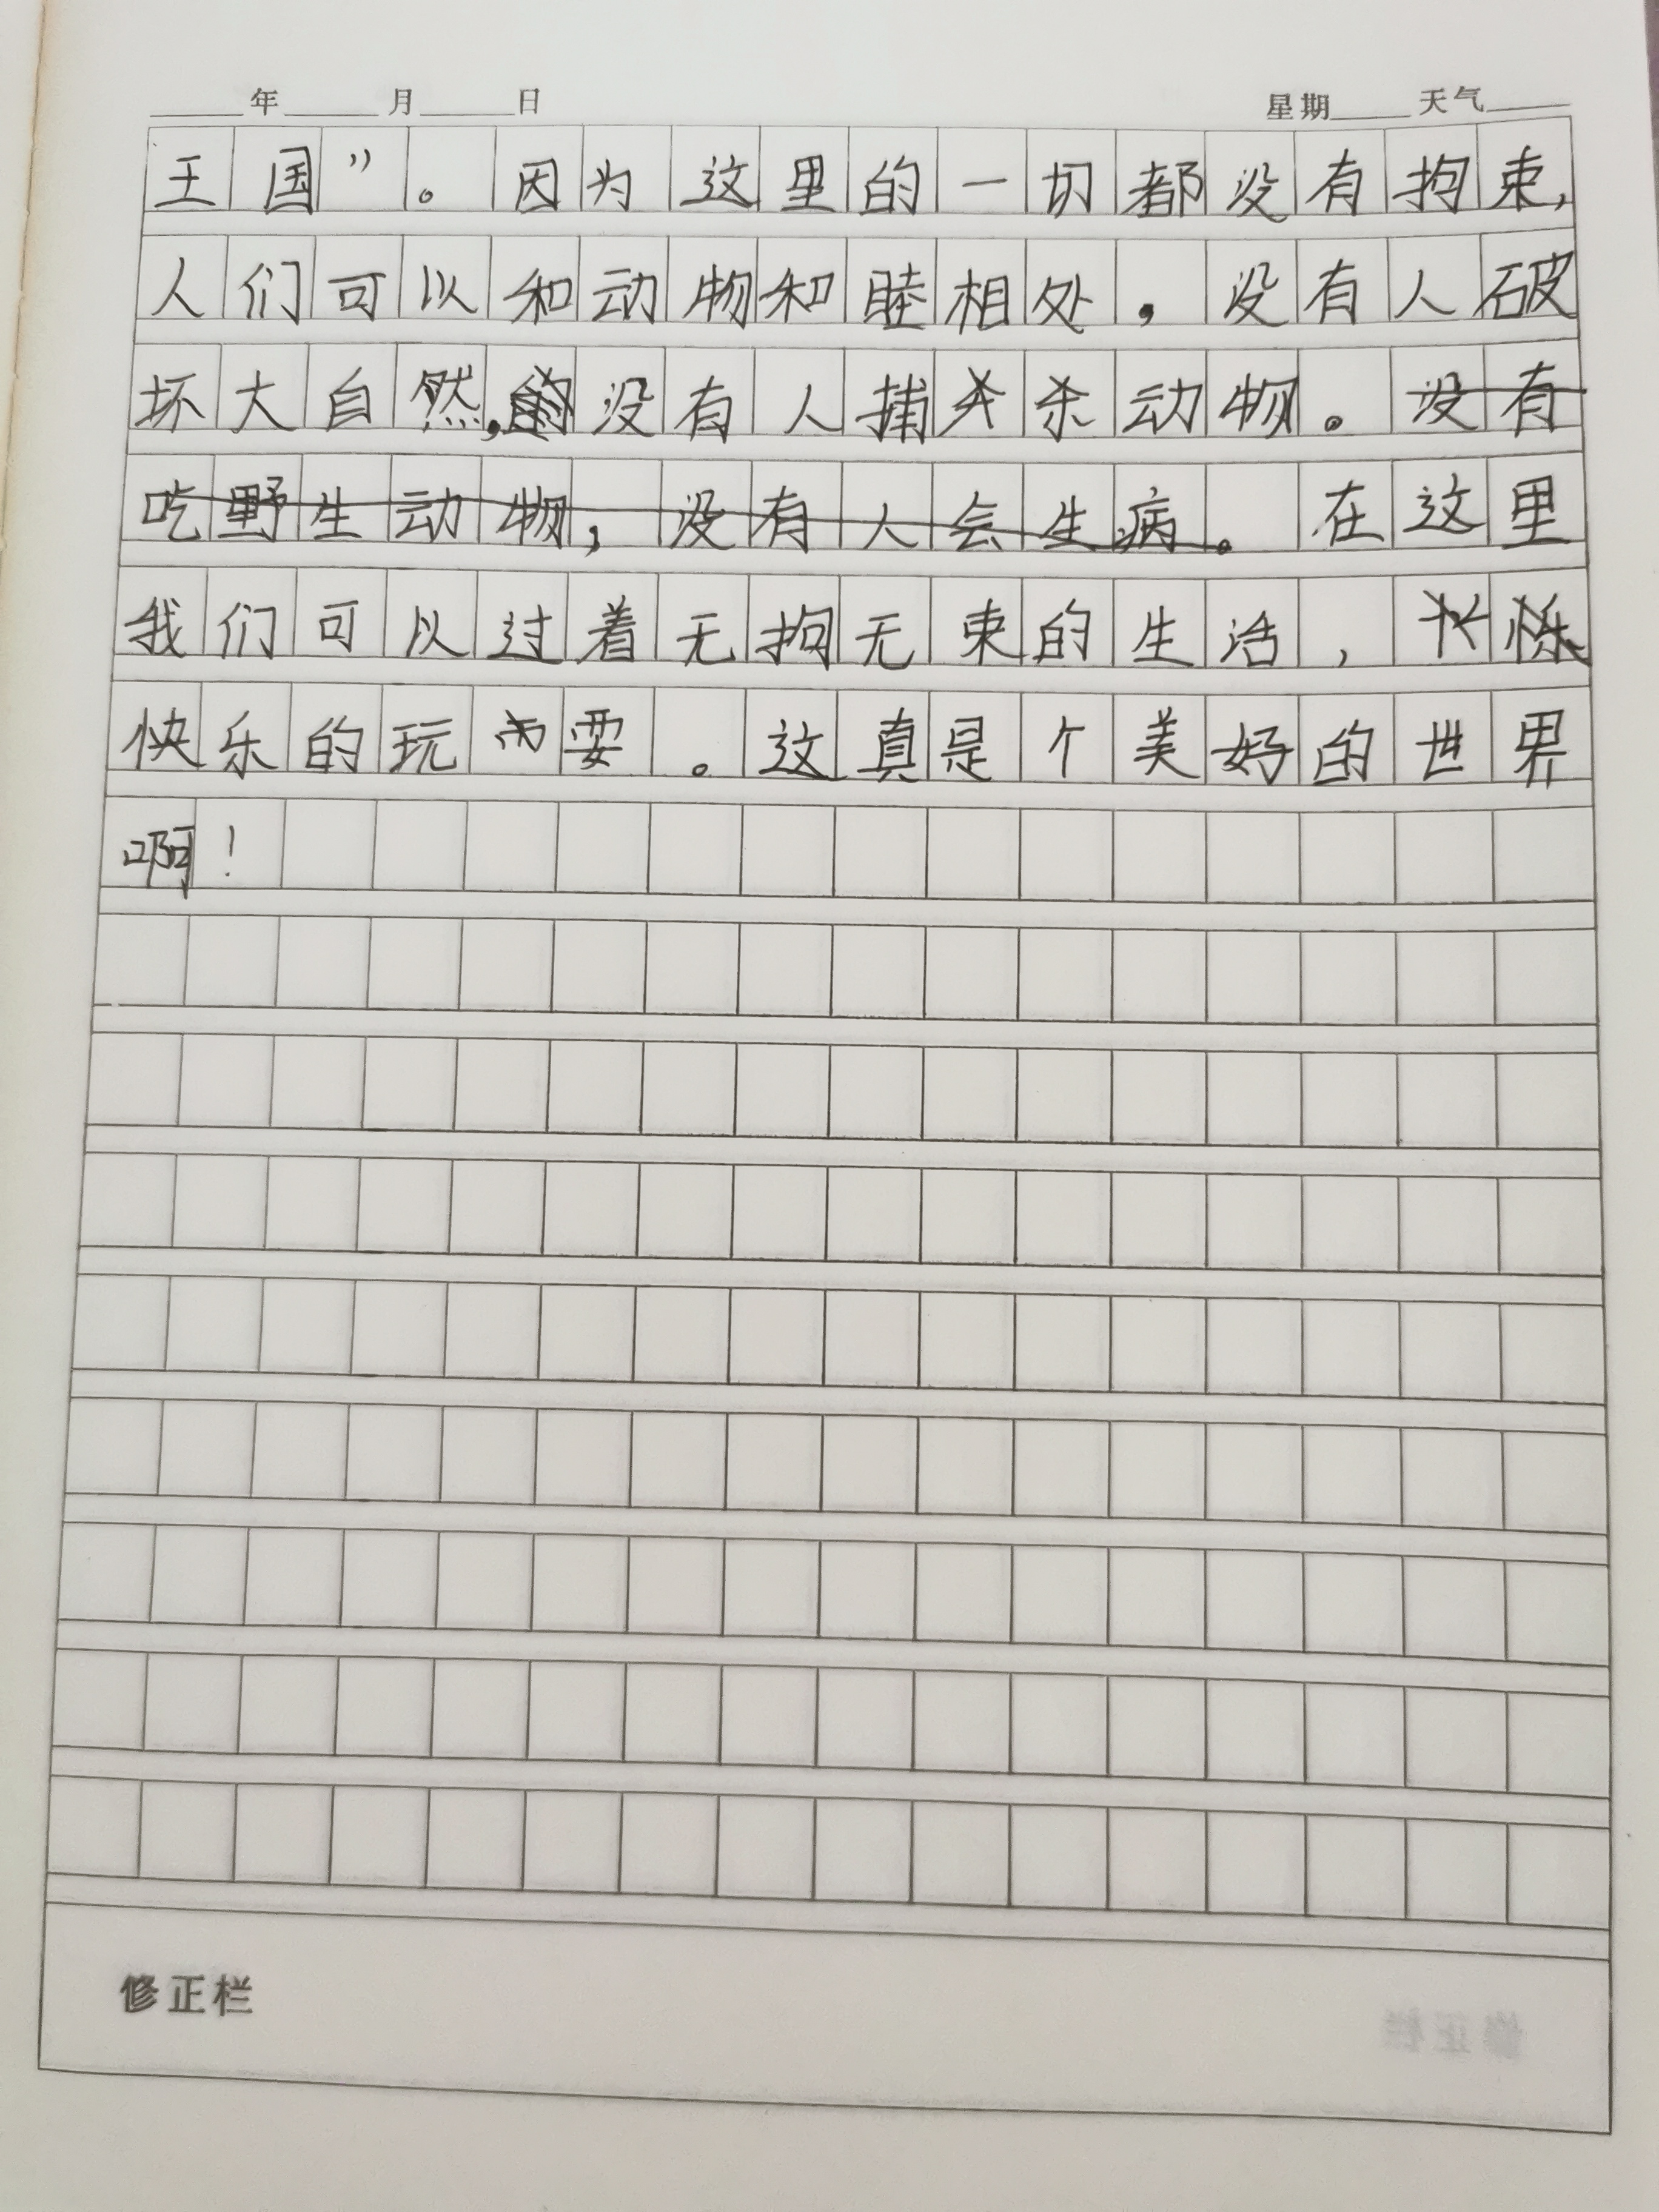 年 月 日 星期 天气
王国”。因为这里的一切都没有拘束,
人们可以和动物和睦相处,没有人破
坏大自然,没有人捕杀动物。没有
吃野生动物,没有人会生病。在这里
我们可以过着无拘无束的生活,
快乐的玩耍。这真是个美好的世界
啊!
修正栏